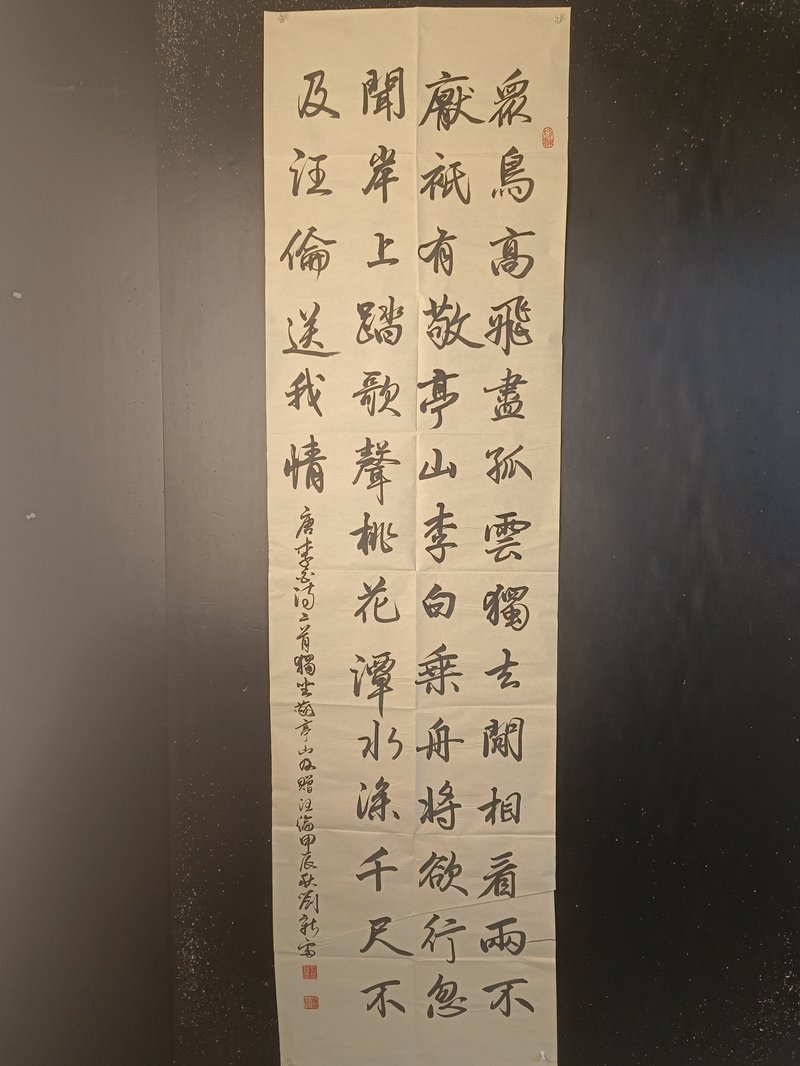 眾鳥高飛盡孤雲獨去閒相看兩不
厭祇有敬亭山李白乘舟將欲行忽
聞岸上踏歌聲桃花潭水深千尺不
及汪倫送我情
唐李白詩二首獨坐敬亭山及贈汪倫甲辰秋劉新